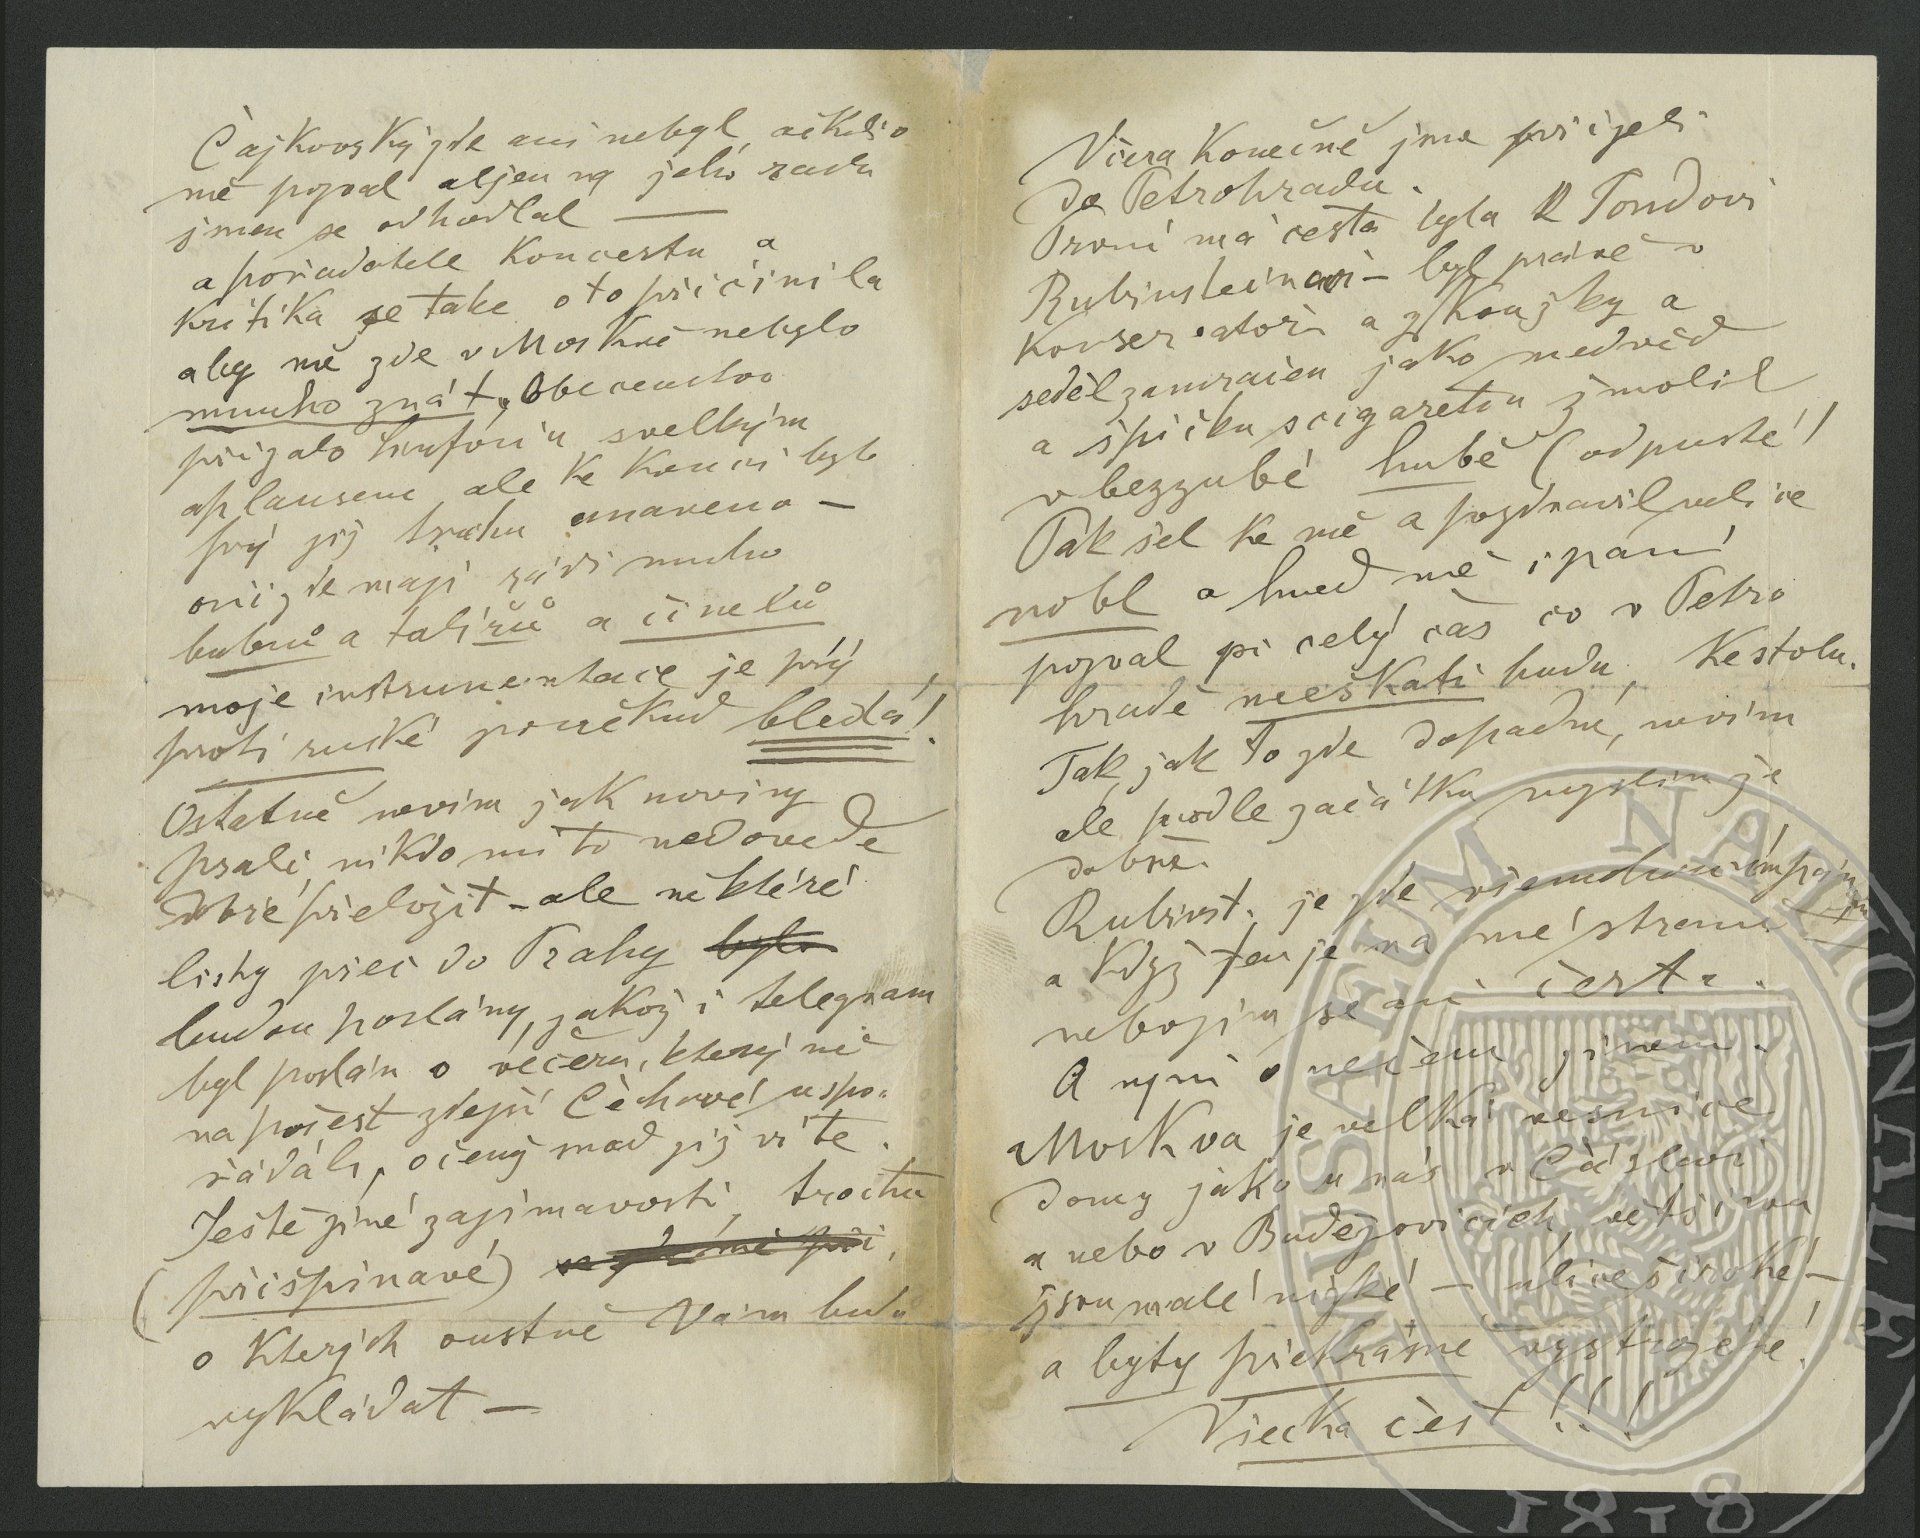 Čajkovský zde ani nebyl, ačkoli
mě pozval a ljen na jeho radu
jmen se odhodlal —
a pořadatele koncertu a
kritika se take o to přičinila
aby mě zde v Moskvě nebylo
mnoho znát. Obecenstvo
přijalo Sinfonii s velkým
aplausem, ale ke konci bylo
prý jij trochu unaveno —
oni zde mají rádi mnoho
bubnů a talířů a činelů
moje instrumentace je prý
proti ruské poněkud bledá!
Ostatně nevím jak noviny
psali, nikdo mi to nedovede
dobře přeložit – ale některé
listy přeci do Prahy bylo
budou poslány, jakož i telegram
byl poslán o večeru, který mě
na počest zdejší Čechové uspo-
řádali, o čemž snad jij víte.
Ještě jiné zajímavosti, trochu
(přišpinavé)
o kterých oustně Vám budu
vykládat —
Včera konečně jsme přijeli
do Petrohradu.
První má cesta byla k Tondovi
Rubinsteinovi – byl právě v
Konservatoři a zkoužky a
seděl zamračen jako medvěd
a špičku s cigaretou žmolil
v bezzubé hubě (odpusťe!
Pak šel ke mě a pozdravil velice
nobl a hned mě i paní
pozval pi celý čas co v Petro
hradě meškati budu, ke stolu.
Tak, jak to zde dopadne, nevím
ale podle začátku myslím je
dobře.
Rubinst. je zde všemohoucím pánem
a když ten je na mé straně
nebojím se ani čerta.
A nyní o nečem jiném.
Moskva je velká vesnice
domy jako u nás v Čáslavi
a nebo v Budějovicích, většinou
jsou malé nizké – ulice široké –
a byty překrásně vystrojené!
Všecka čest!!!
MUSAEUM NATIONALE
1818